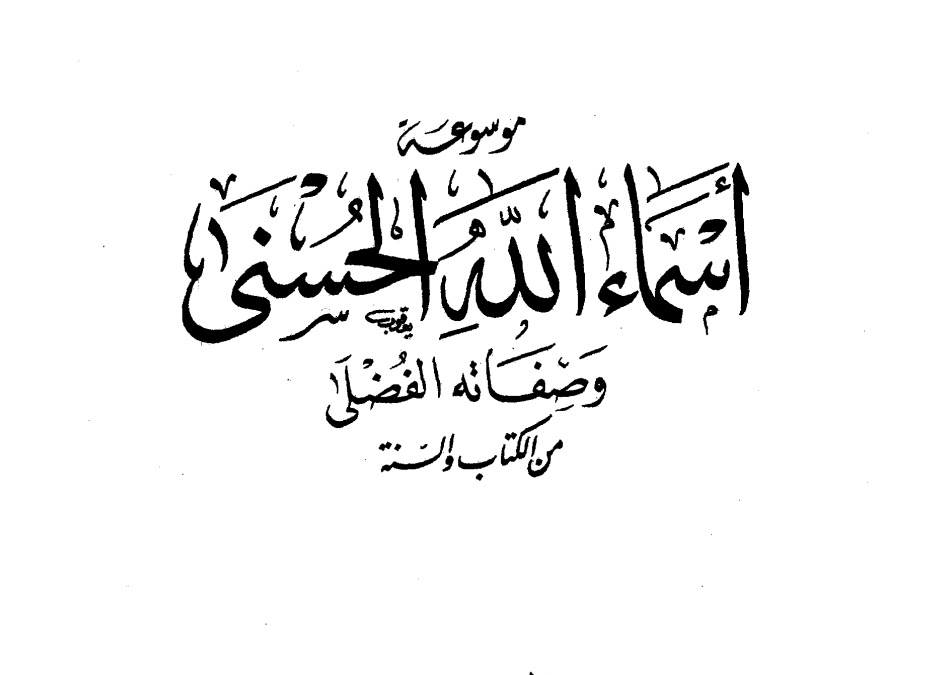 موسوعة
أسماء اللهِ الحُسْنى
وَصِفَاته الفُضْلَى
من الكتاب والسنة